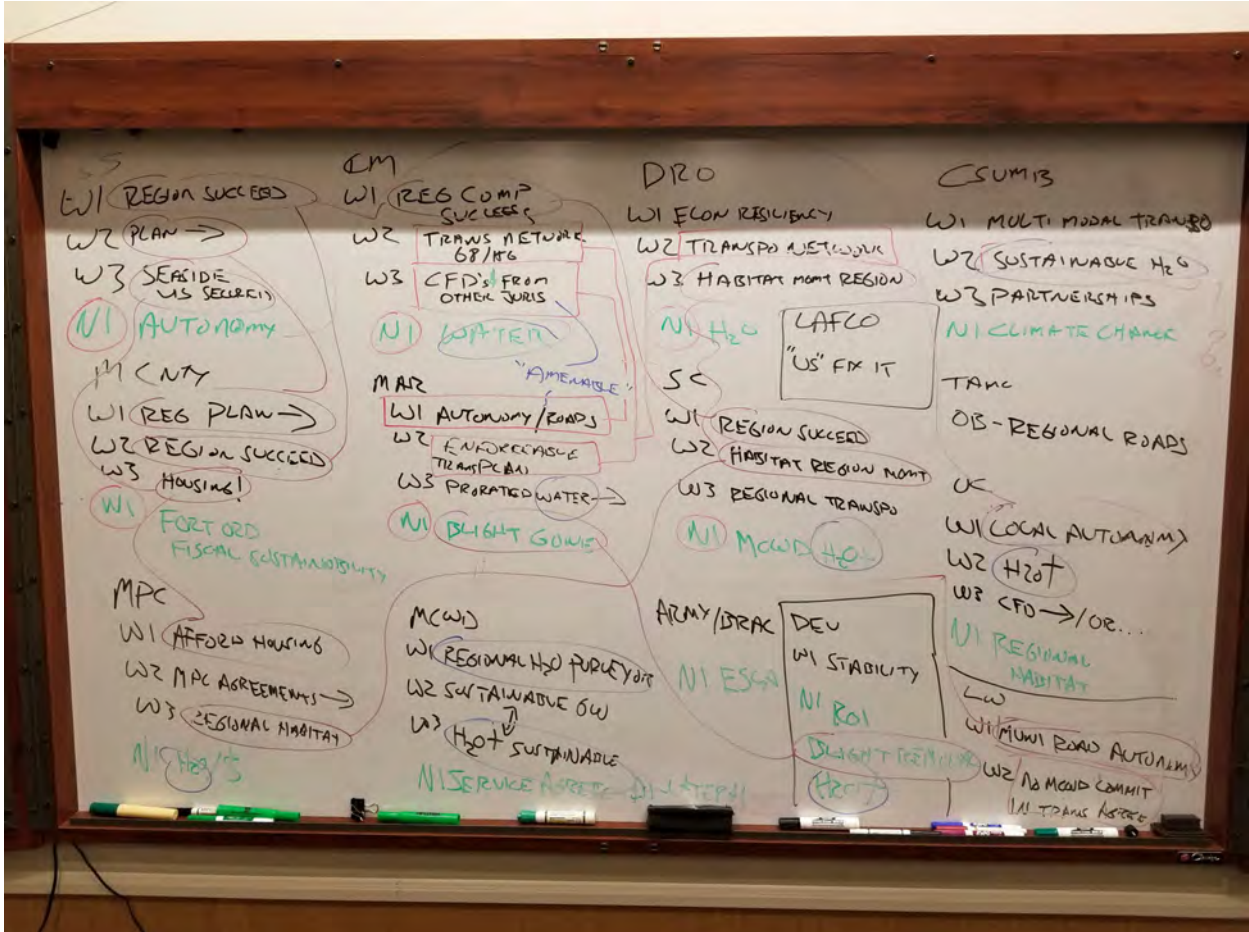 W1 REGION SUCCEED
W2 PLAN →
W3 SEASIDE
N1 AUTONOMY
M CNTY
W1 REG PLAN →
W2 REGION SUCCEED
W3 HOUSING!
FORT ORD
FISCAL SUSTAINABILITY
MPC
W1 AFFORD HOUSING
W2 MPC AGREEMENTS →
W3 REGIONAL HABITAT
CM
W1 REG COMP
SUCCESS
W2 TRANS NETWORK
W3 CFD's FROM
OTHER JURIS
N1 WATER
"AMENABLE"
MAR
W1 AUTONOMY/ROADS
W2 ENFORCEABLE
TRANSPLAN
W3 PRORATED WATER →
N1 BLIGHT GONE
MCWD
W1 REGIONAL H2O PURVEYOR
W2 SUSTAINABLE GW
W3 H2O† SUSTAINABLE
N1 SERVICE
DRO
W1 ECON RESILIENCY
W2 TRANSPO NETWORK
W3 HABITAT MGMT REGION
N1 H2O
LAFCO
"US" FIX IT
SC
W1 REGION SUCCEED
W2 HABITAT REGION MGMT
W3 REGIONAL TRANSPO
N1 MCWD H2O
ARMY/BRAC
N1 ESCA
DEV
W1 STABILITY
N1 ROI
BLIGHT
CSUMB
W1 MULTI MODAL TRANSPO
W2 SUSTAINABLE H2O
W3 PARTNERSHIPS
N1 CLIMATE CHANGE
TAMC
OB-REGIONAL ROADS
UC
W1 LOCAL AUTONOMY
W2 H2O†
W3 CFD →/OR...
N1 REGIONAL
HABITAT
LW
W1 MUNI ROAD AUTONOMY
W2 NO MCWD COMMIT
IN TRANS AGREE